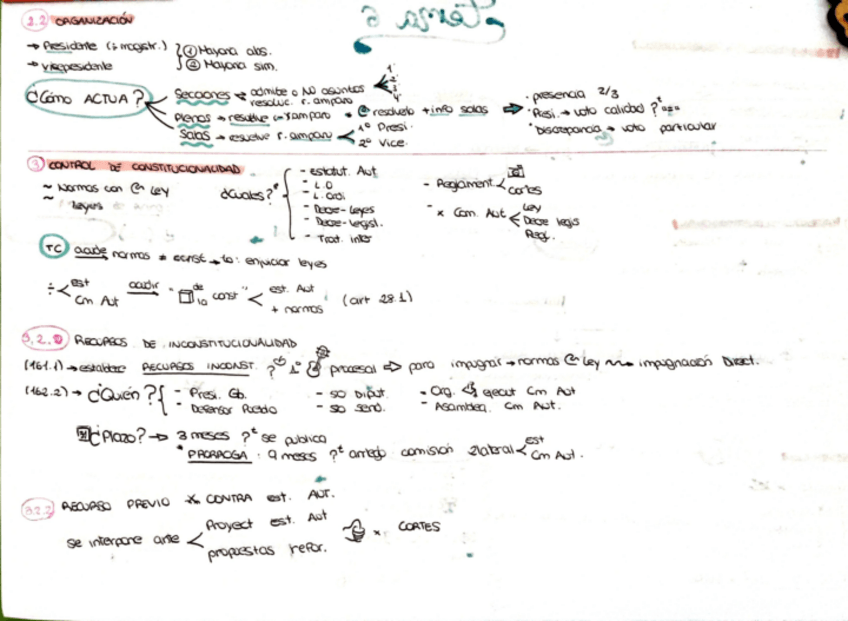 2.2 ORGANIZACIÓN
→ Presidente (÷ magistr.) ① Mayoria abs.
→ Vicepresidente ② Mayoria sim.
¿Cómo ACTUA?
Secciones admite o NO asuntos
resoluc. r. amparo
Plenos → resolver r. amparo resolverlo + info salas ⇒
Salas → resuelve r. amparo 1º Presi.
2º Vice.
· presencia 2/3
· Presi. → voto calidad ?
· Discrepancia → voto particular
③ CONTROL DE CONSTITUCIONALIDAD
~ Normas con Ley
~ leyes
¿Cuales?
- estatut. Aut
- L.O
- L. Ordi
- Decre-Leyes
- Decre-Legisl.
- Trat. inter
- Reglament < Cortes
- x Com. Aut < Ley
Decre legis
Regl.
TC acude normas ≠ const → to: enjuiciar leyes
÷ < est
Cm Aut
acudir " de la const " < est. Aut
+ normas (art 28.1)
3.2.1 RECURSOS DE INCONSTITUCIONALIDAD
(161.1) → establece RECURSOS INCONST. procesal ⇒ para impugnar → normas Ley impugnación Direct.
(162.2) → ¿Quién? { - Presi. Gb. - 50 Diput. - Org. ejecut Cm Aut
- Defensor Pueblo - 50 send. - Asamblea. Cm Aut.
¿Plazo? → 3 meses ?t se publica
* PRORROGA : 9 meses ?t arreglo comisión 2lateral < est
Cm Aut.
3.2.2 RECURSO PREVIO CONTRA est. AUT.
se interpone ante < Proyect est. Aut
propuestas refor.
x CORTES